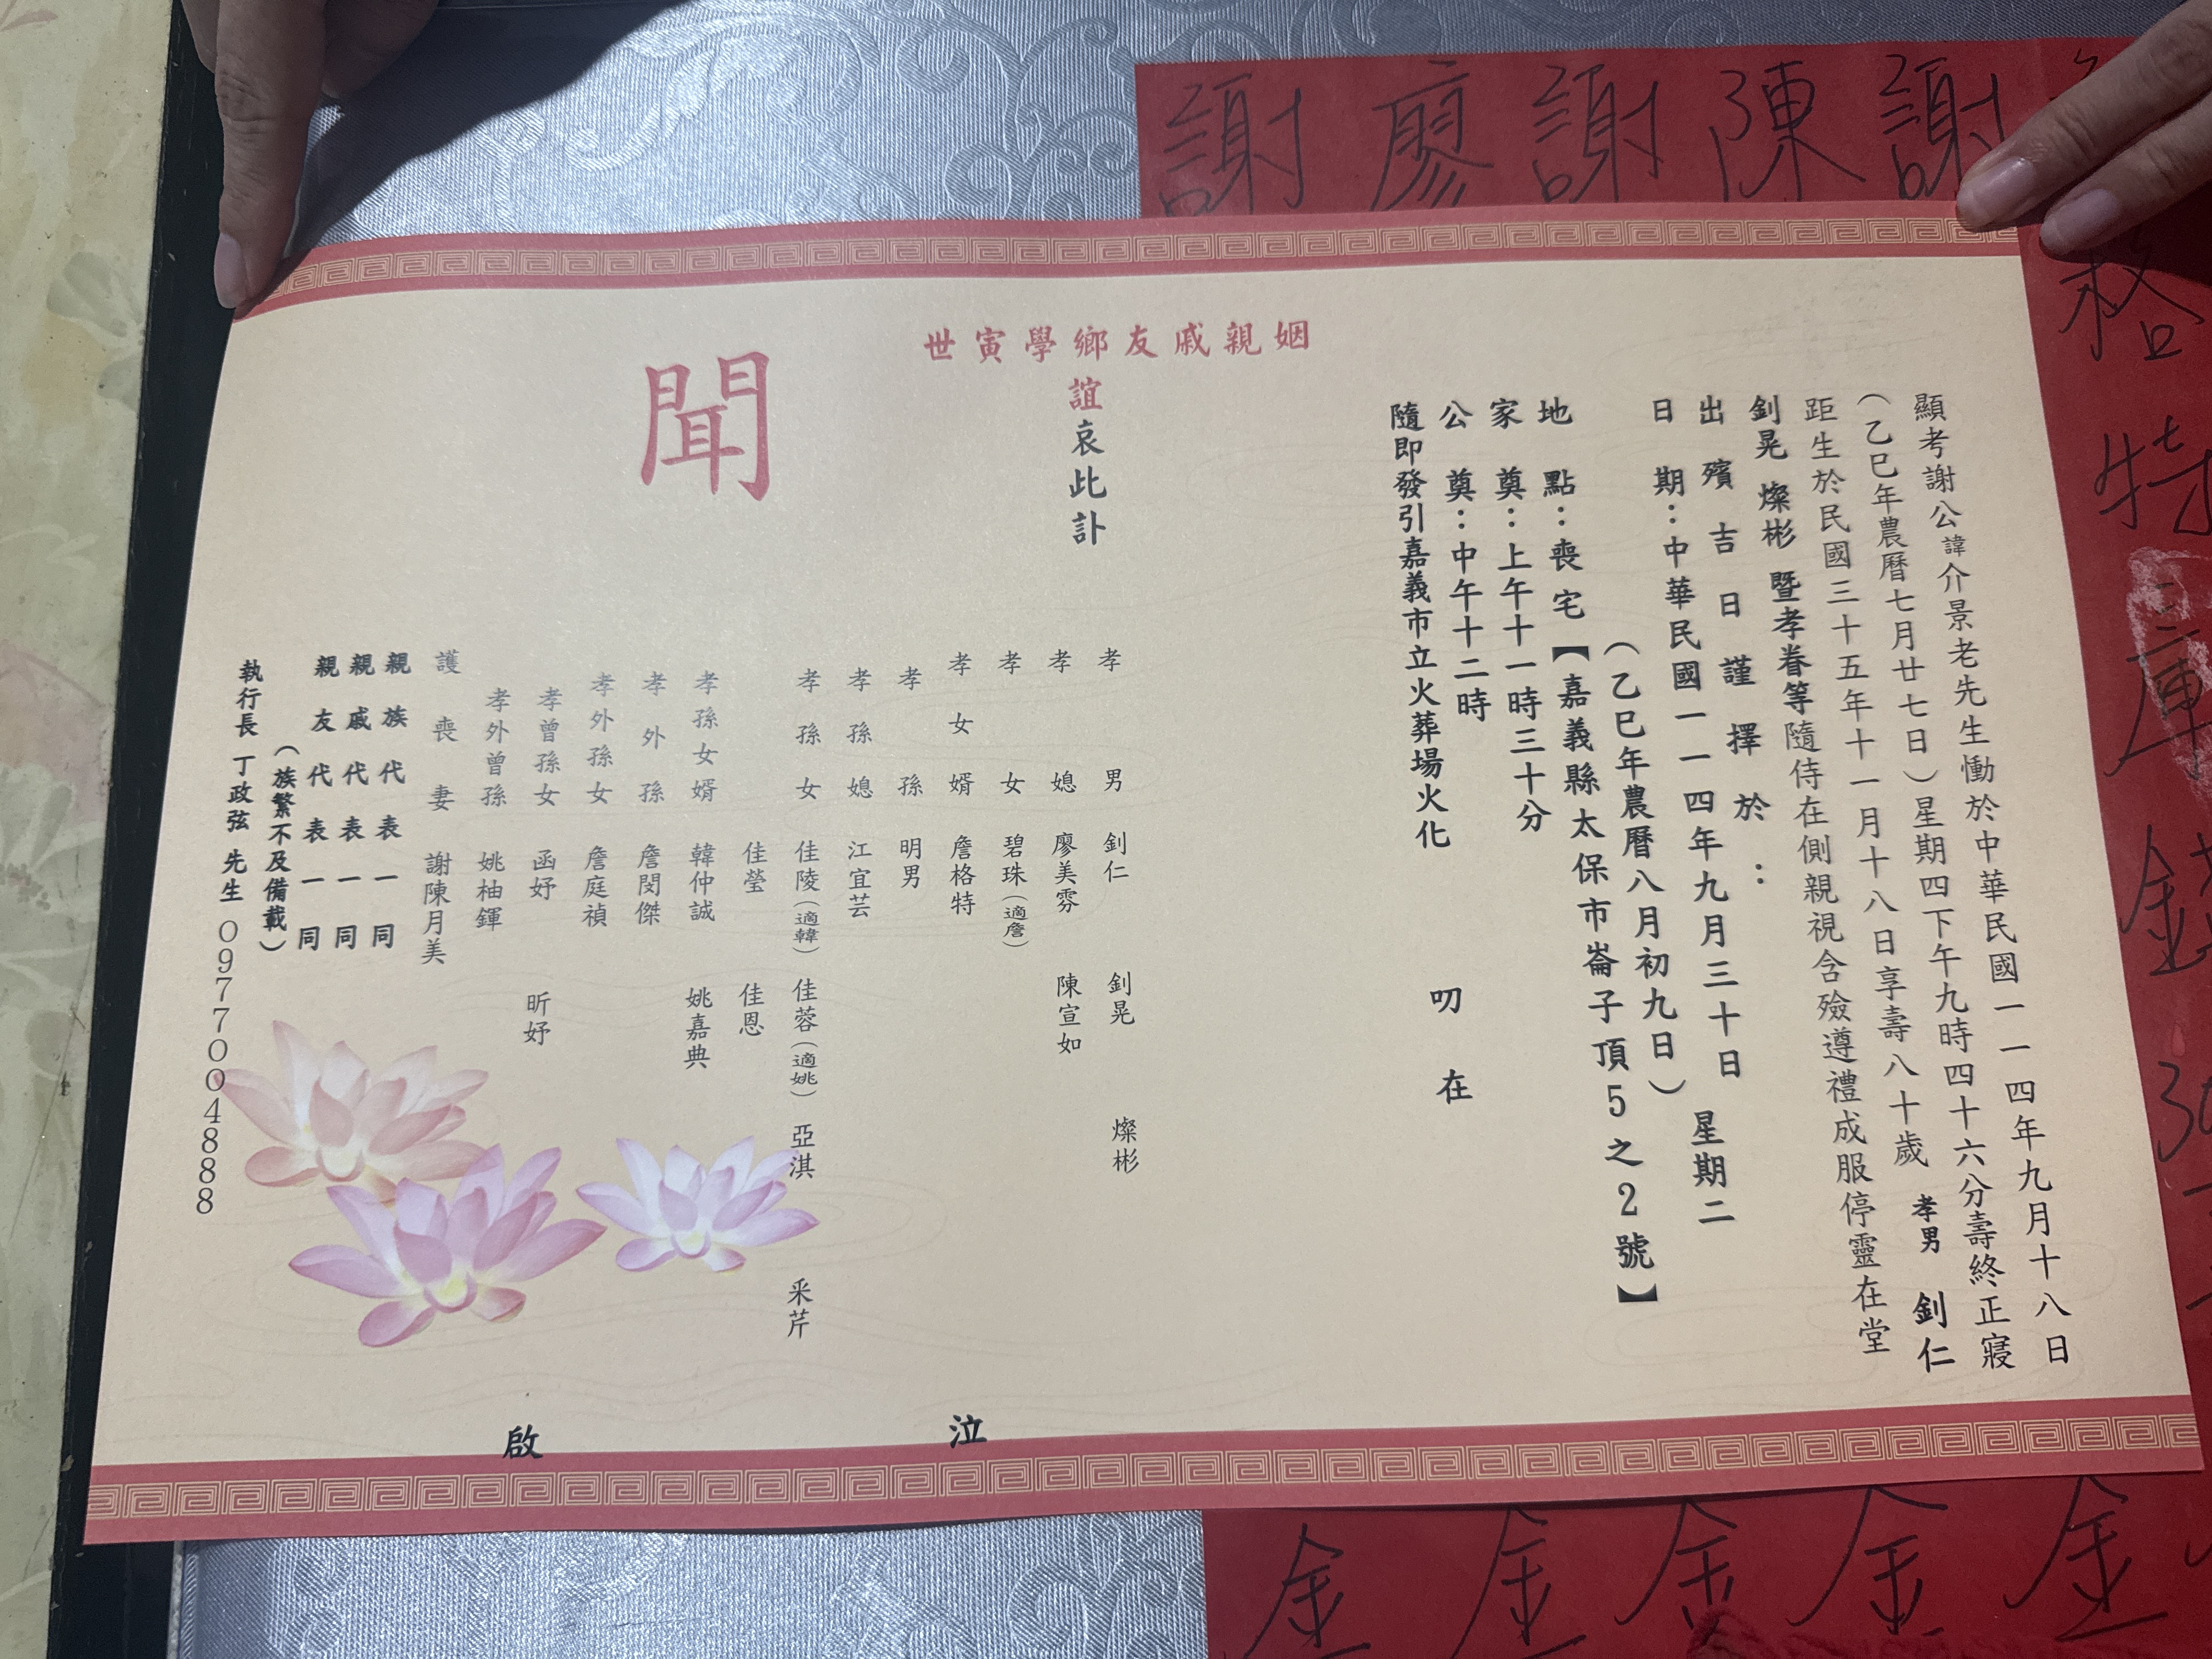 顯考謝公諱介景老先生慟於中華民國一一四年九月十八日
（乙巳年農曆七月廿七日）星期四下午九時四十六分壽終正寢
距生於民國三十五年十一月十八日享壽八十歲 孝男 釗仁
釗晃 燦彬 暨孝眷等隨侍在側親視含殮遵禮成服停靈在堂
出殯吉日謹擇於：
日期：中華民國一一四年九月三十日 星期二
（乙巳年農曆八月初九日）
地點：喪宅【嘉義縣太保市崙子頂5之2號】
家奠：上午十一時三十分
公奠：中午十二時
隨即發引嘉義市立火葬場火化
叨在
姻親戚友鄉學寅世
誼哀此訃
聞
孝男 釗仁 釗晃 燦彬
孝媳 廖美雰 陳宣如
孝女 碧珠（適詹）
孝女婿 詹格特
孝孫 明男
孝孫媳 江宜芸
孝孫女 佳陵（適韓） 佳蓉（適姚） 亞淇 采芹
佳瑩 佳恩
孝孫女婿 韓仲誠 姚嘉典
孝外孫 詹閔傑
孝外孫女 詹庭禎
孝曾孫女 函妤 昕妤
孝外曾孫 姚柚鍕
護喪妻 謝陳月美
親族代表一同
親戚代表一同
親友代表一同
（族繁不及備載）
執行長 丁政弦 先生 0977004888
泣
啟
謝
陳
謝
廖
謝
特
庫
金
金
金
金
金